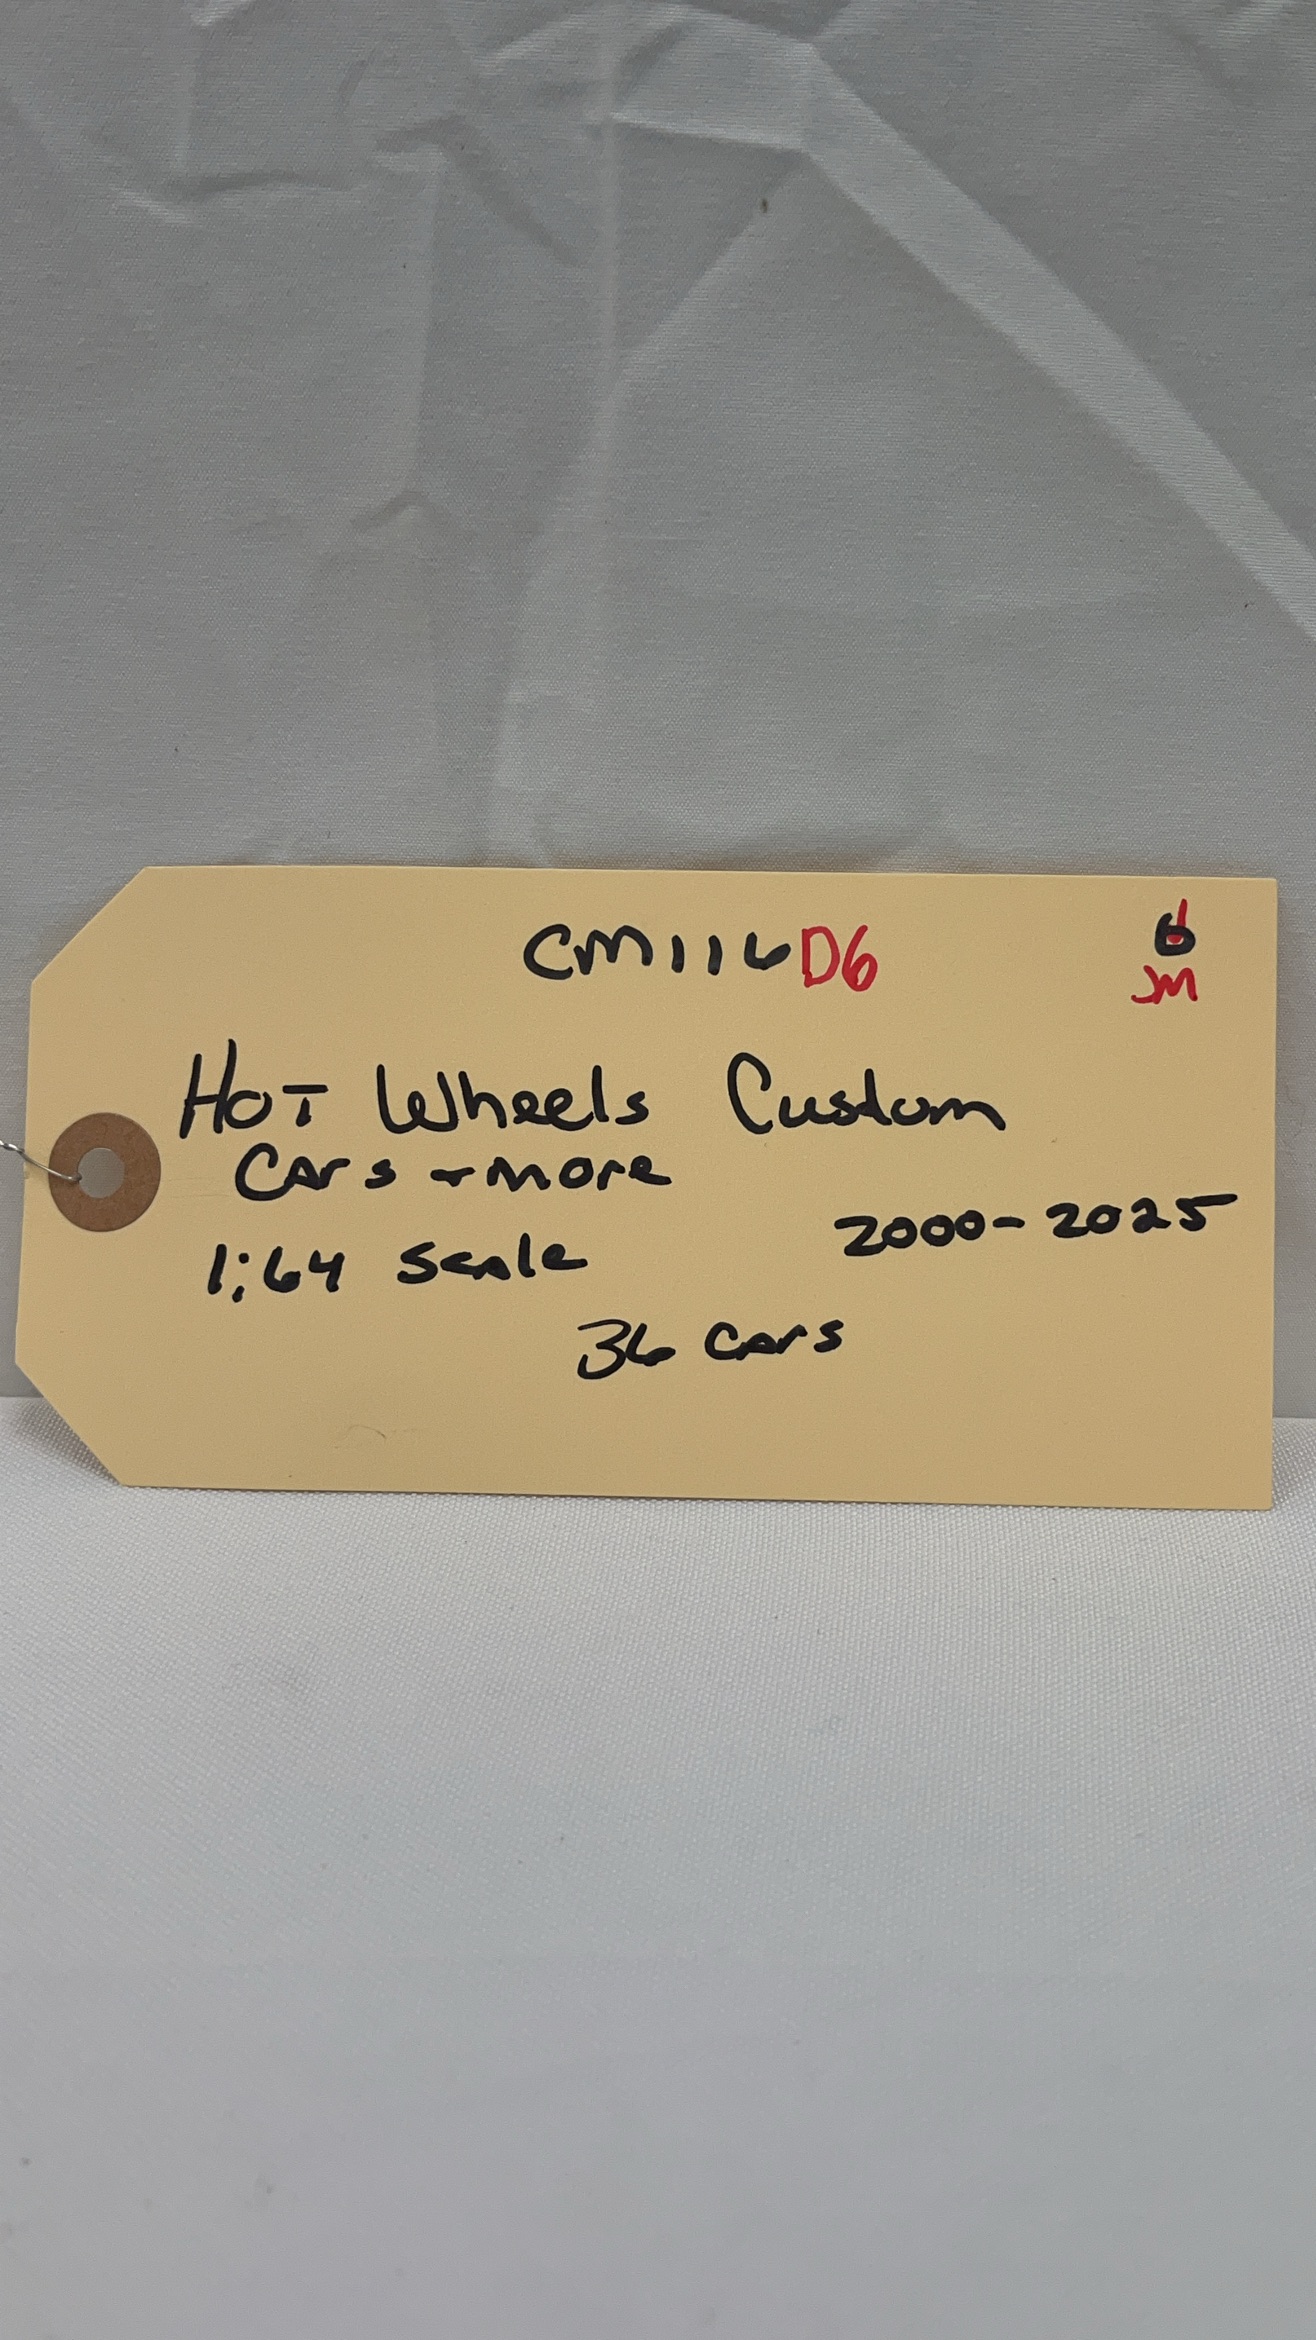 CM116D6
JM
HOT Wheels Custom
Cars + more
1:64 Scale
2000-2025
36 cars